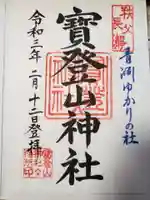 秩父
長瀞
青淵ゆかりの社
寶登山神社
令和三年二月十二日登拝